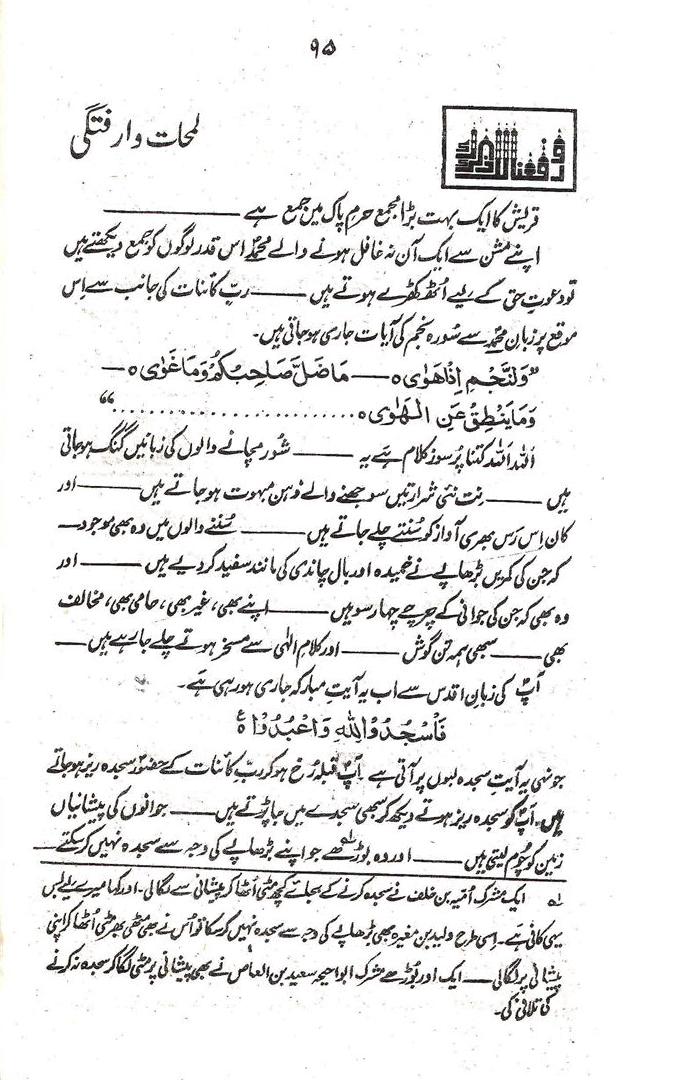 ۹۵
لمحات وارفتگی
ورفعنا لک ذکرک
قریش کا ایک بہت بڑا مجمع حرمِ پاک میں جمع ہے ــــــــ
اپنے مشن سے ایک آن نہ غافل ہونے والے محمدؐ اس قدر لوگوں کو جمع دیکھتے ہیں
تو دعوتِ حق کے لیے اُٹھ کھڑے ہوتے ہیں ــــــــ ربِّ کائنات کی جانب سے اِس
موقع پر زبانِ محمدؐ سے سُورہ نجم کی آیات جاری ہو جاتی ہیں۔
”وَلنَّجْمِ اِذَا هَوٰى ه ــــــــ مَاضَلَّ صَاحِبُكُمْ وَمَا غَوٰى ه ــــــــ
وَمَا يَنْطِقُ عَنِ الْهَوٰى ه ........................“
اللہ اللہ کتنا پُرسوز کلام ہے یہ ــــــــ شور مچانے والوں کی زبانیں گنگ ہو جاتی
ہیں ــــــــ نِت نئی شرارتیں سوچھنے والے ذہن مبہوت ہو جاتے ہیں ــــــــ اور
کان اِس رَس بھری آواز کو سُنتے چلے جاتے ہیں ــــــــ سُننے والوں میں وہ بھی موجود ــــــــ
کہ جن کی کمریں بڑھاپے نے خمیدہ اور بال چاندی کی مانند سفید کر دیے ہیں ــــــــ اور
وہ بھی کہ جن کی جوانی کے چرچے چہار سو ہیں ــــــــ اپنے بھی، غیر بھی، حامی بھی، مخالف
بھی ــــــــ سبھی ہمہ تن گوش ــــــــ اور کلامِ الٰہی سے مسخر ہوتے چلے جا رہے ہیں ــــــــ
آپؐ کی زبانِ اقدس سے اب یہ آیتِ مبارکہ جاری ہو رہی ہے۔
فَاسْجُدُوْا لِلّٰهِ وَاعْبُدُوْا ه ع
جونہی یہ آیتِ سجدہ لبوں پر آتی ہے آپؐ قبلہ رُخ ہو کر ربِّ کائنات کے حضور سجدہ ریز ہو جاتے
ہیں۔ آپؐ کو سجدہ ریز ہوتے دیکھ کر سبھی سجدے میں جا پڑتے ہیں ــــــــ جوانوں کی پیشانیاں
زمین کو چُوم لیتی ہیں ــــــــ اور وہ بوڑھے جو اپنے بڑھاپے کی وجہ سے سجدہ نہیں کر سکتے ــــــــ
لہ ایک مشرک اُمیہ بن خلف نے سجدہ کرنے کے بجائے کچھ مٹی اُٹھا کر پیشانی سے لگا لی۔ اور کہا میرے لیے بس
یہی کافی ہے۔ اِسی طرح ولید بن مغیرہ بھی بڑھاپے کی وجہ سے سجدہ نہیں کر سکا تو اُس نے بھی مٹھی بھر مٹی اُٹھا کر اپنی
پیشانی پر لگا لی ــــــــ ایک اور بُوڑھے مشرک ابو احیحہ سعید بن العاص نے بھی پیشانی پر مٹی لگا کر سجدہ نہ کرنے
کی تلافی کی۔